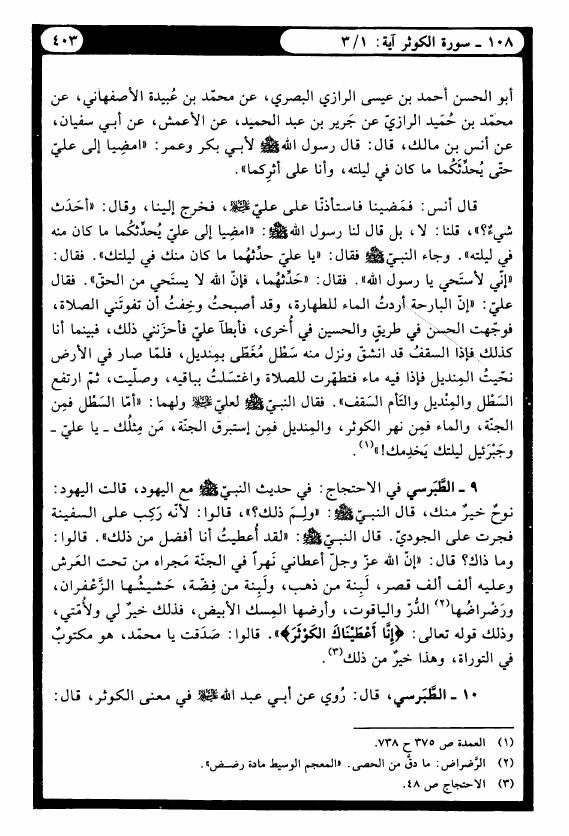 ١٠٨ ـ سورة الكوثر آية: ١ /٣
٤٠٣
أبو الحسن أحمد بن عيسى الرازي البصري، عن محمّد بن عُبيدة الأصفهاني، عن
محمّد بن حُمَيد الرازيّ عن جَرير بن عبد الحميد، عن الأعمش، عن أبي سفيان،
عن أنس بن مالك، قال: قال رسول الله ﷺ لأبي بكر وعمر: «امضِيا إلى عليّ
حتّى يُحدِّثَكُما ما كان في ليلته، وأنا على أثرِكما».
قال أنس: فمَضينا فاستأذنّا على عليّ ﷺ، فخرج إلينا، وقال: «أحَدَث
شيءٌ؟»، قلنا: لا، بل قال لنا رسول الله ﷺ: «امضِيا إلى عليّ يُحدِّثْكُما ما كان منه
في ليلته». وجاء النبيّ ﷺ فقال: «يا عليّ حدِّثهُما ما كان منك في ليلتك». فقال:
«إنّي لأستَحي يا رسول الله». فقال: «حَدِّثهُما، فإنّ الله لا يستَحي من الحقّ». فقال
عليّ: «إنّ البارحة أردتُ الماء للطهارة، وقد أصبحتُ وخِفتُ أن تفوتَني الصلاة،
فوجّهت الحسن في طريقٍ والحسين في أُخرى، فأبطآ عليّ فأحزَنني ذلك، فبينما أنا
كذلك فإذا السقفُ قد انشقّ ونزل منه سَطْل مُغَطّى بمِنديل، فلمّا صار في الأرض
نحّيتُ المِنديل فإذا فيه ماء فتطهّرت للصلاة واغتسَلتُ بباقيه، وصلّيت، ثمّ ارتفع
السَطْل والمِنْديل والتَأم السقف». فقال النبيّ ﷺ لعليّ ﷺ ولهما: «أمّا السَطْل فمِن
الجنّة، والماء فمِن نهر الكوثر، والمِنديل فمِن إستبرق الجنّة، مَن مِثلُك ـ يا عليّ ـ
وجَبْرَئيل ليلتك يَخدِمك!»(١).
٩ ـ الطَّبَرسي في الاحتجاج: في حديث النبيّ ﷺ مع اليهود، قالت اليهود:
نوحٌ خيرٌ منك، قال النبيّ ﷺ: «ولِمَ ذلك؟»، قالوا: لأنّه رَكِب على السفينة
فجرت على الجوديّ. قال النبيّ ﷺ: «لقد أُعطيتُ أنا أفضل من ذلك». قالوا:
وما ذاك؟ قال: «إنّ الله عزّ وجلّ أعطاني نَهراً في الجنّة مَجراه من تحت العَرش
وعليه ألف ألف قصر، لَبِنة من ذهب، ولَبِنة من فِضّة، حَشيشُها الزَّعْفران،
ورَضْراضُها(٢) الدُرّ والياقوت، وأرضها المِسك الأبيض، فذلك خيرٌ لي ولأُمّتي،
وذلك قوله تعالى: ﴿إِنَّا أَعْطَيْنَاكَ الكَوْثَرَ﴾». قالوا: صَدَقت يا محمّد، هو مكتوبٌ
في التوراة، وهذا خيرٌ من ذلك(٣).
١٠ ـ الطَّبَرسي، قال: رُوي عن أبي عبد الله ﷺ في معنى الكوثر، قال:
(١) العمدة ص ٣٧٥ ح ٧٣٨.
(٢) الرَّضراض: ما دقَّ من الحصى. «المعجم الوسيط مادة رضـض».
(٣) الاحتجاج ص ٤٨.